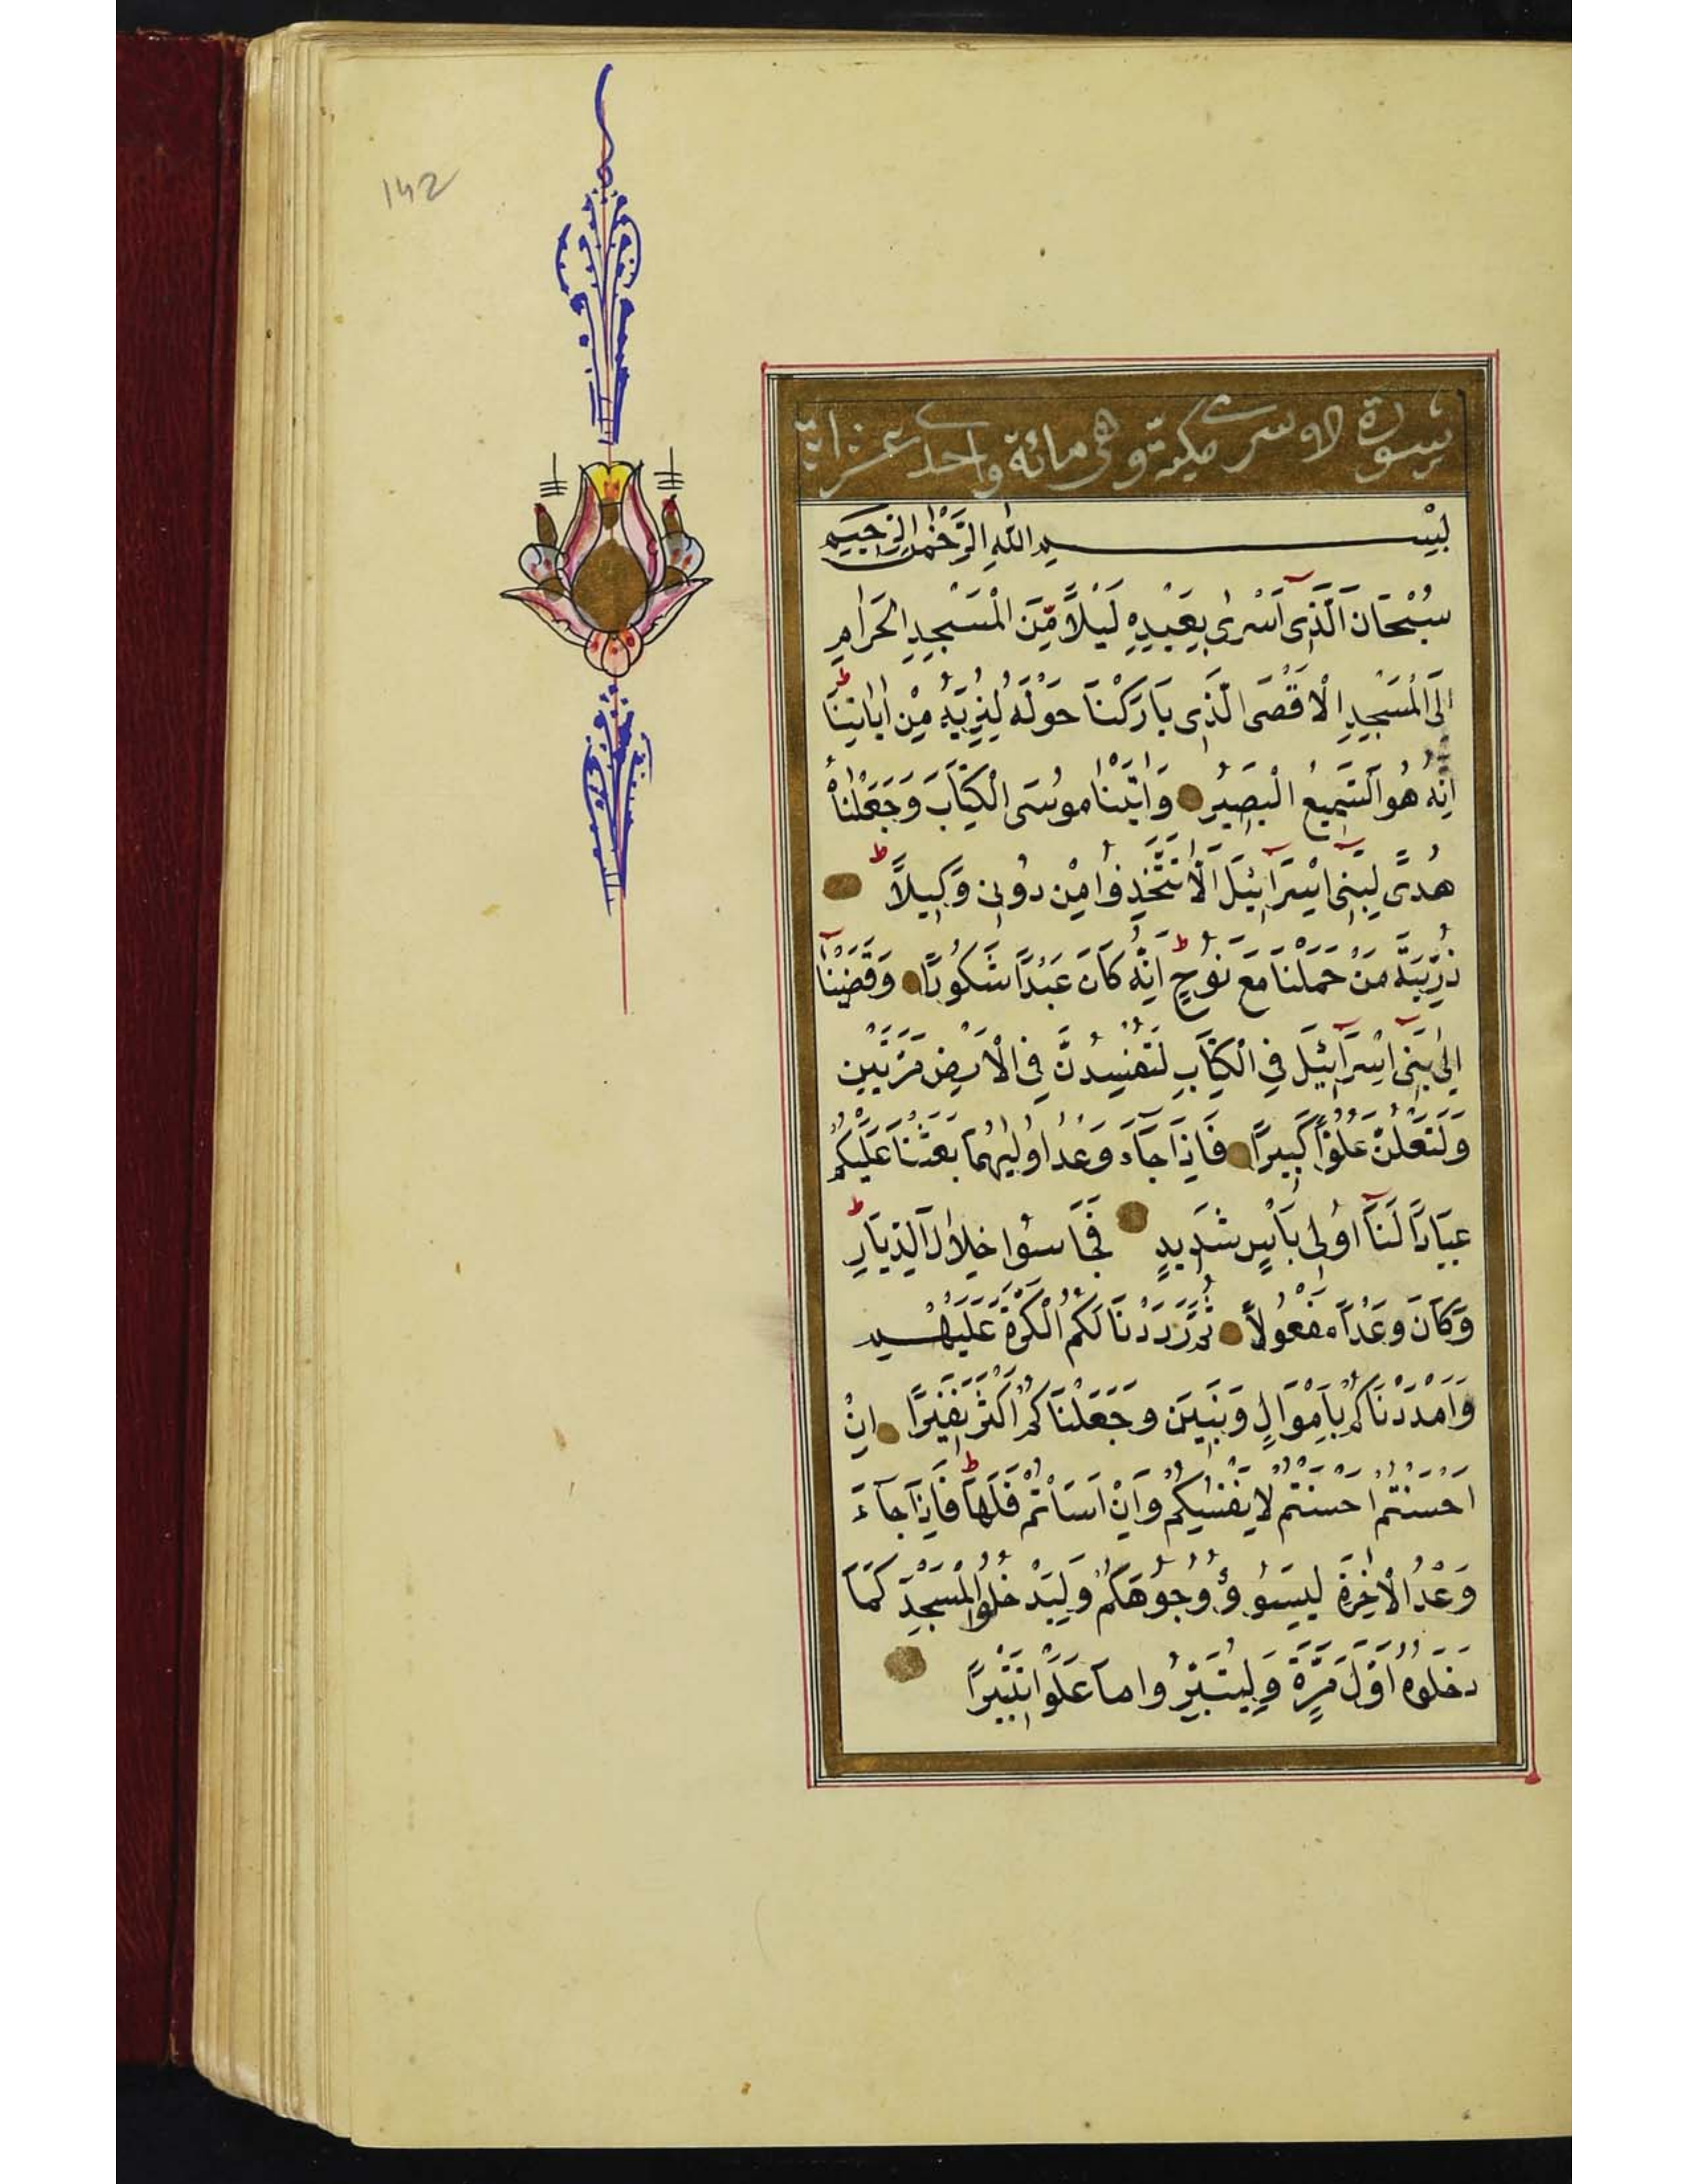 142
سورة الاسرى مكية وهى مائة واحدى عشر اية
بِسْمِ اللّٰهِ الرَّحْمٰنِ الرَّحِيمِ
سُبْحَانَ الَّذِىٓ اَسْرٰى بِعَبْدِهِ لَيْلًا مِّنَ الْمَسْجِدِ الْحَرَامِ
اِلَى الْمَسْجِدِ الْاَقْصَى الَّذِى بَارَكْنَا حَوْلَهُ لِنُرِيَهُ مِنْ اٰيَاتِنَا ط
اِنَّهُ هُوَ السَّمِيعُ الْبَصِيرُ وَاٰتَيْنَا مُوسَى الْكِتَابَ وَجَعَلْنَاهُ
هُدًى لِبَنِىٓ اِسْرَٓائِيلَ اَلَّا تَتَّخِذُوا مِنْ دُونِى وَكِيلًا ط
ذُرِّيَّةَ مَنْ حَمَلْنَا مَعَ نُوحٍ ط اِنَّهُ كَانَ عَبْدًا شَكُورًا وَقَضَيْنَٓا
اِلٰى بَنِىٓ اِسْرَٓائِيلَ فِى الْكِتَابِ لَتُفْسِدُنَّ فِى الْاَرْضِ مَرَّتَيْنِ
وَلَتَعْلُنَّ عُلُوًّا كَبِيرًا فَاِذَا جَٓاءَ وَعْدُ اُولٰيهُمَا بَعَثْنَا عَلَيْكُمْ
عِبَادًا لَنَٓا اُولِى بَأْسٍ شَدِيدٍ فَجَاسُوا خِلَالَ الدِّيَارِ ط
وَكَانَ وَعْدًا مَفْعُولًا ثُمَّ رَدَدْنَا لَكُمُ الْكَرَّةَ عَلَيْهِمْ
وَاَمْدَدْنَاكُمْ بِاَمْوَالٍ وَبَنِينَ وَجَعَلْنَاكُمْ اَكْثَرَ نَفِيرًا اِنْ
اَحْسَنْتُمْ اَحْسَنْتُمْ لِاَنْفُسِكُمْ وَاِنْ اَسَأْتُمْ فَلَهَا ط فَاِذَا جَٓاءَ
وَعْدُ الْاٰخِرَةِ لِيَسُوؤُ وُجُوهَكُمْ وَلِيَدْخُلُوا الْمَسْجِدَ كَمَا
دَخَلُوهُ اَوَّلَ مَرَّةٍ وَلِيُتَبِّرُوا مَا عَلَوْا تَتْبِيرًا